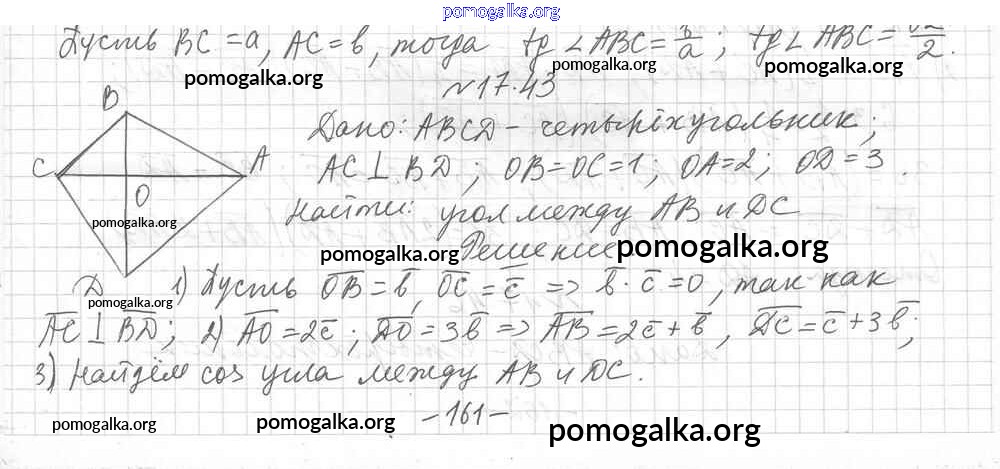 pomogalka.org
Пусть BC = a, AC = b, тогда tg ∠ABC = b/a ; tg ∠ABC = √2/2.
pomogalka.org pomogalka.org pomogalka.org
N17.43
B
Дано: ABCD – четырёхугольник;
C A
AC ⊥ BD ; OB = OC = 1 ; OA = 2 ; OD = 3.
O
pomogalka.org
Найти: угол между AB и DC
Решение
pomogalka.org pomogalka.org
Д
pomogalka.org
1) Пусть OB = b, OC = c => b · c = 0, так как
AC ⊥ BD; 2) AO = 2c ; DO = 3b => AB = 2c + b , DC = c + 3b ;
3) Найдём cos угла между AB и DC.
– 161 –
pomogalka.org pomogalka.org pomogalka.org